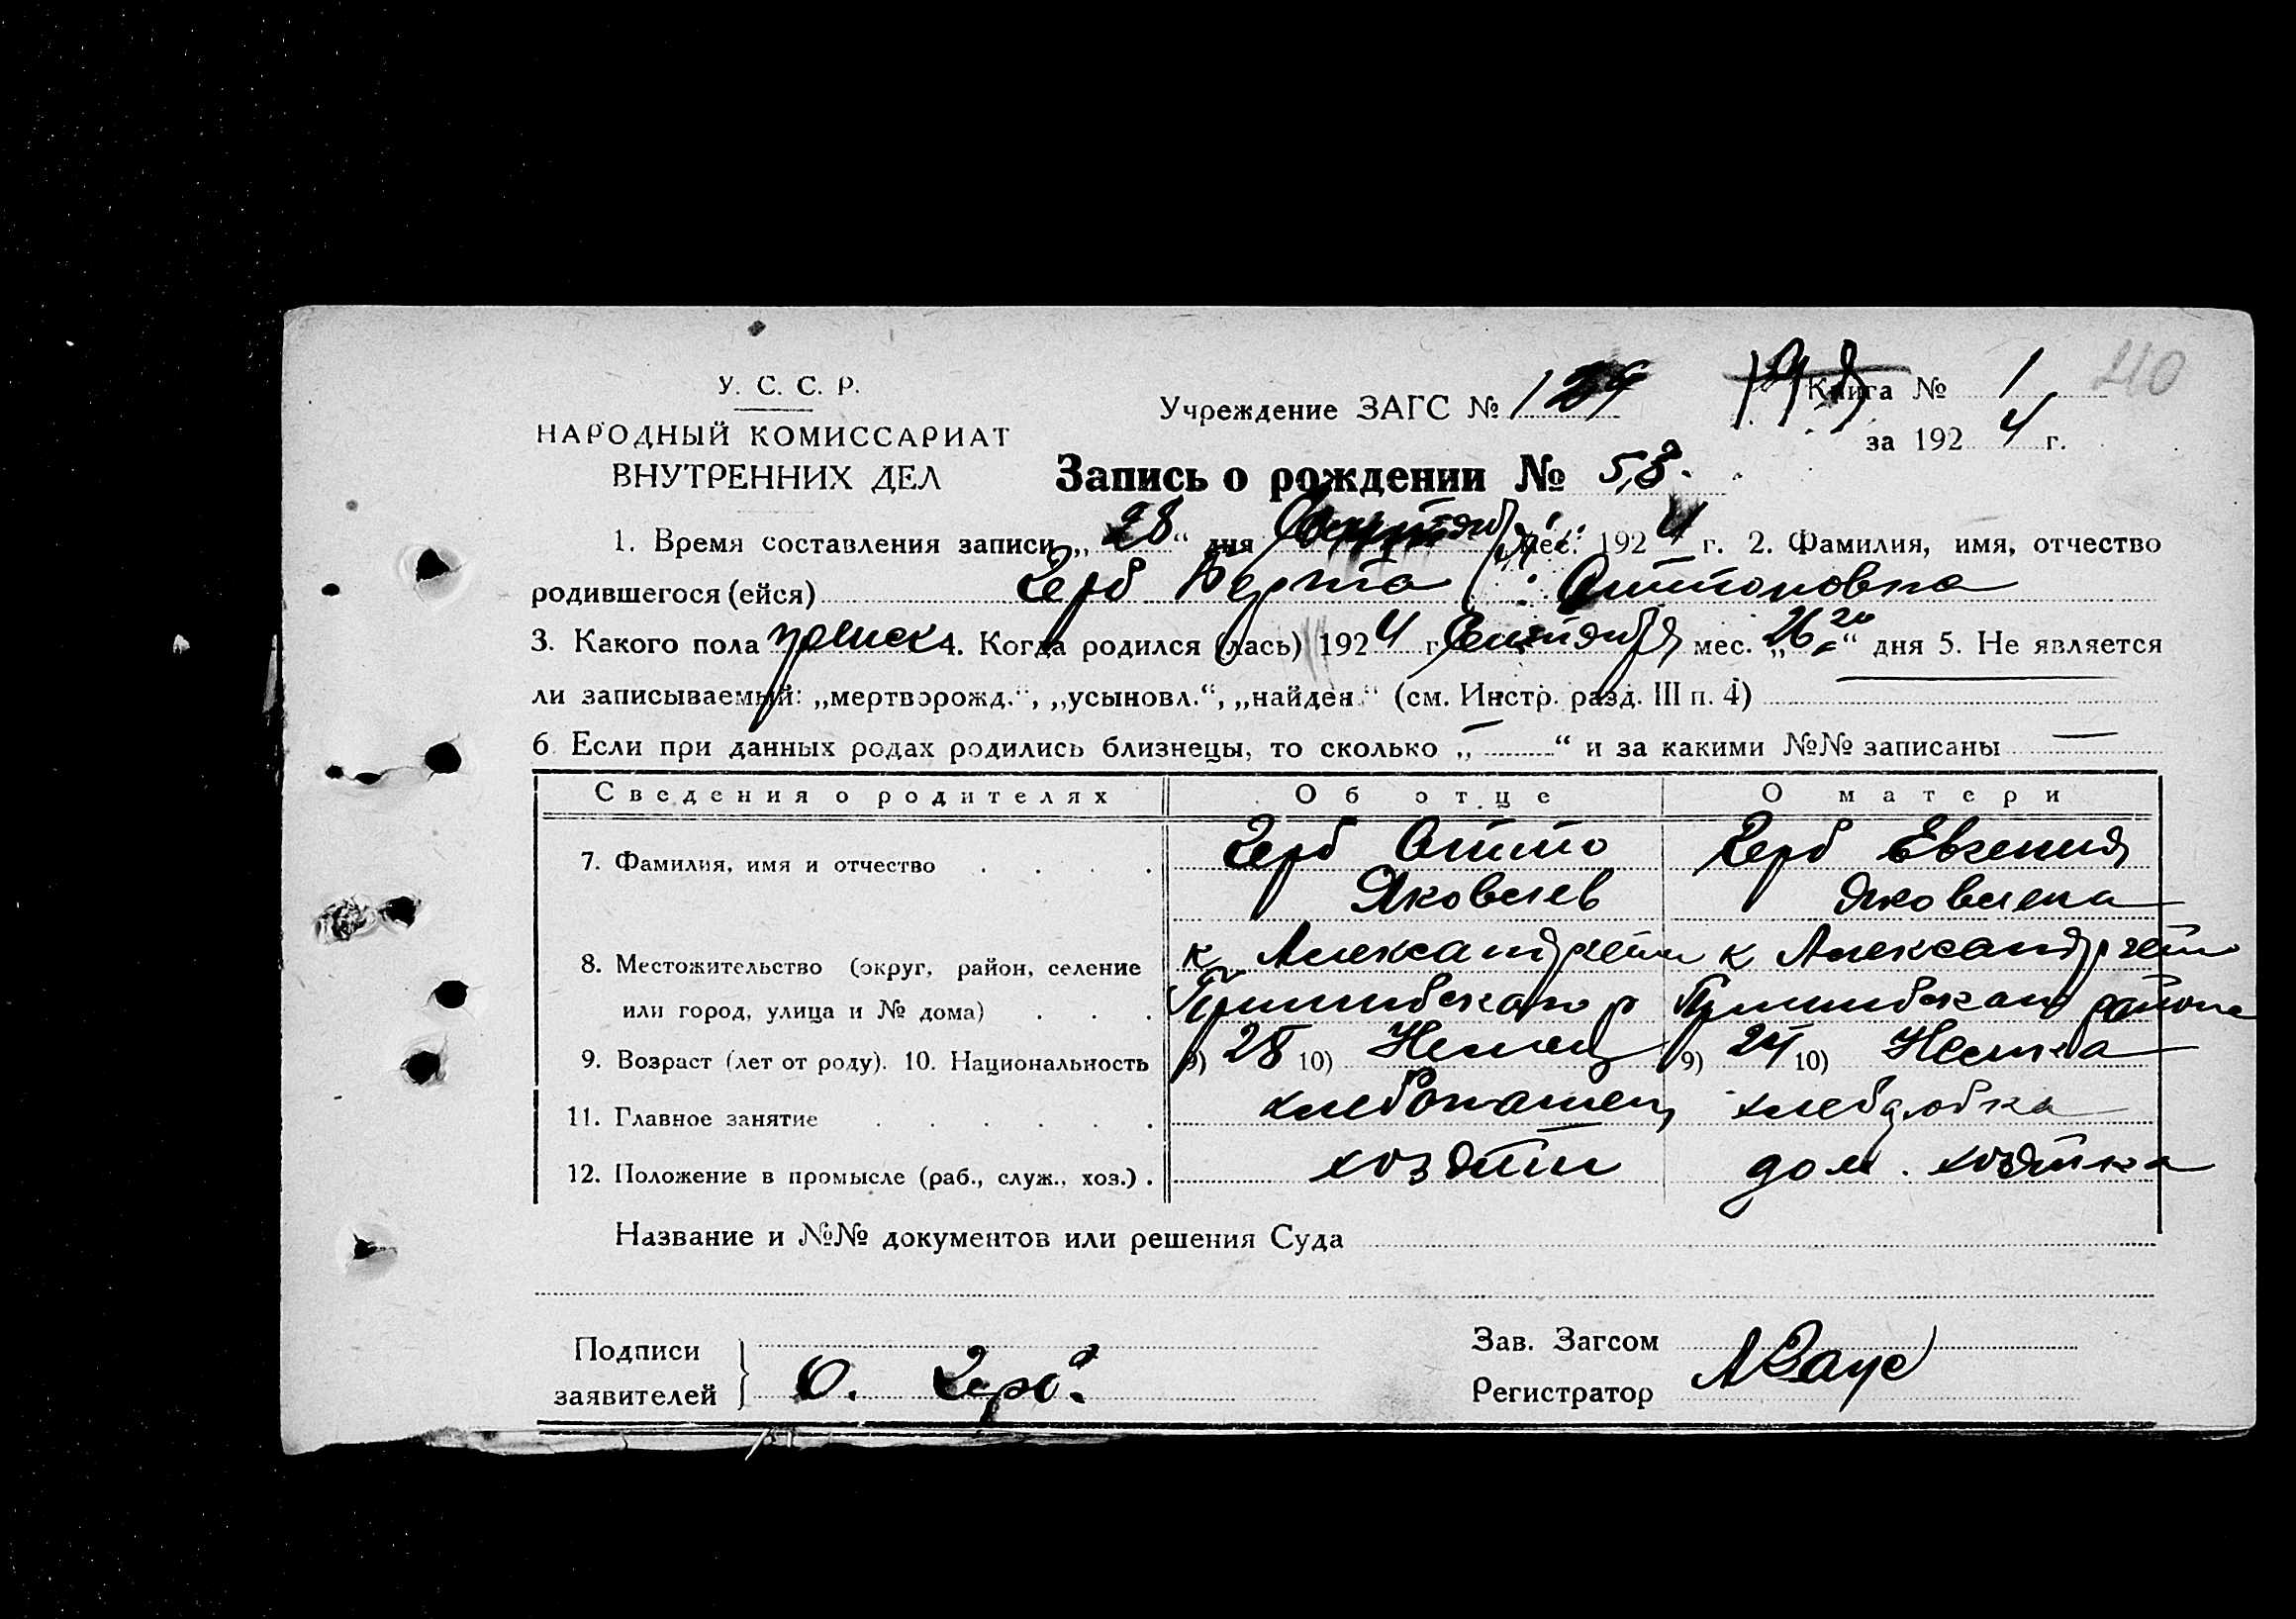 40
У. С. С. Р.
НАРОДНЫЙ КОМИССАРИАТ
ВНУТРЕННИХ ДЕЛ
Учреждение ЗАГС № 129 Книга № 1
за 1924 г.
Запись о рождении № 58.
1. Время составления записи „28“ дня Сентября мес. 1924 г. 2. Фамилия, имя, отчество
родившегося (ейся) Герб Берта Оттоновна
3. Какого пола женск 4. Когда родился (лась) 1924 г Сентября мес. „26го“ дня 5. Не является
ли записываемый: „мертворожд.“, „усыновл.“, „найден.“ (см. Инстр. разд. III п. 4) —
6 Если при данных родах родились близнецы, то сколько „—“ и за какими №№ записаны —
Сведения о родителях Об отце О матери
7. Фамилия, имя и отчество Герб Отто Герб Евгения
Яковлев Яковлевна
8. Местожительство (округ, район, селение к Александргейм к Александргейм
или город, улица и № дома) Пришибского р Пришибского района
9. Возраст (лет от роду). 10. Национальность 9) 28 10) Немец 9) 24 10) Немка
11. Главное занятие хлебопашец
12. Положение в промысле (раб., служ., хоз.) хозяин дом. хозяйка
Название и №№ документов или решения Суда
Подписи
заявителей О. Герб.
Зав. Загсом
Регистратор